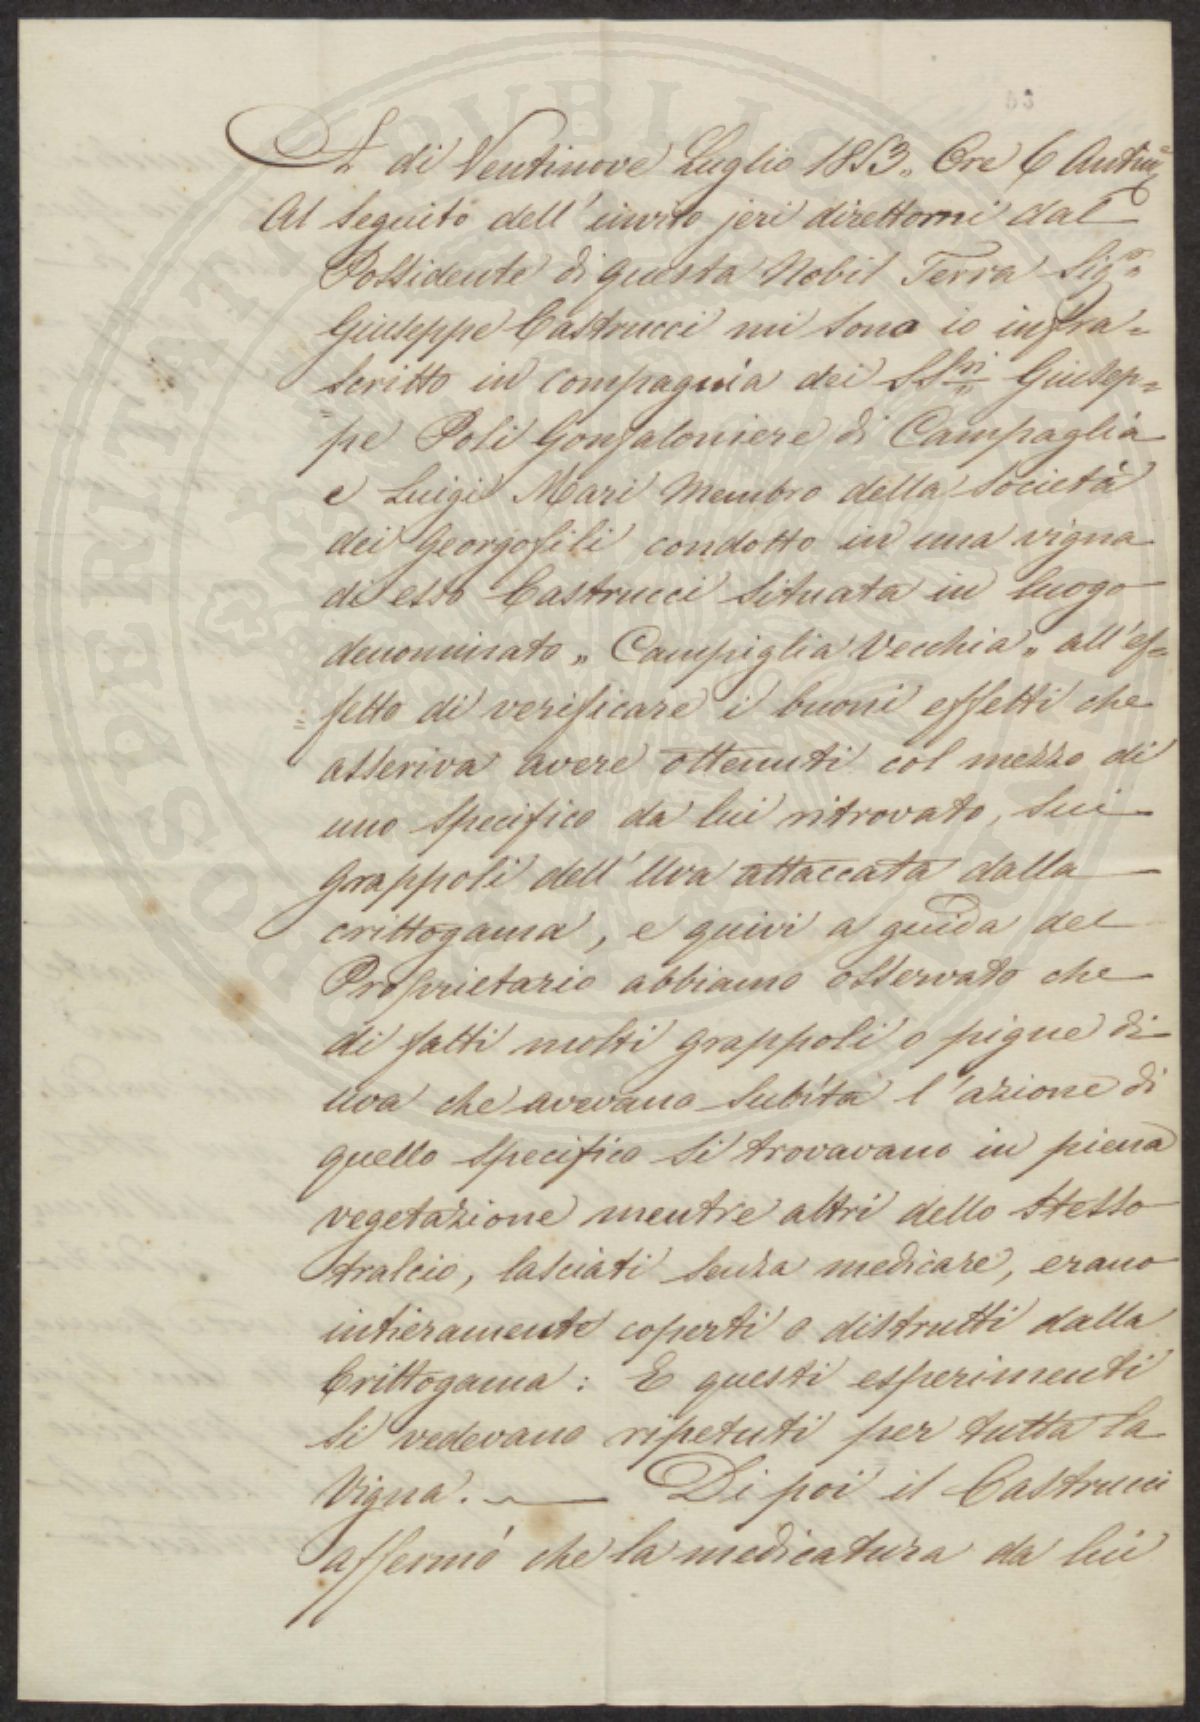 53
A di Ventinove Luglio 1853. Ore 6 Antim.e
Al seguito dell'invito jeri direttomi dal
Possidente di questa Nobil Terra Sig.r
Giuseppe Castrucci mi sono io infra=
scritto in compagnia dei SS.ri Giusep=
=pe Poli Gonfaloniere di Campaglia
e Luigi Mari Membro della Società
dei Georgofili condotto in una vigna
di esso Castrucci situata in luogo
denominato „ Campiglia Vecchia „ all'ef=
=fetto di verificare i buoni effetti che
asseriva avere ottenuti col mezzo di
uno specifico da lui ritrovato, sui
grappoli dell'Uva attaccata dalla
crittogama, e quivi a guida del
Proprietario abbiamo osservato che
di fatti molti grappoli o pigne di
uva che avevano subita l'azione di
quello specifico si trovavano in piena
vegetazione mentre altri dello stesso
tralcio, lasciati senza medicare, erano
intieramente coperti o distrutti dalla
Crittogama: E questi esperimenti
si vedevano ripetuti per tutta la
Vigna. — Di poi il Castrucci
affermò che la medicatura da lui
PROSPERITATI PUBLICAE